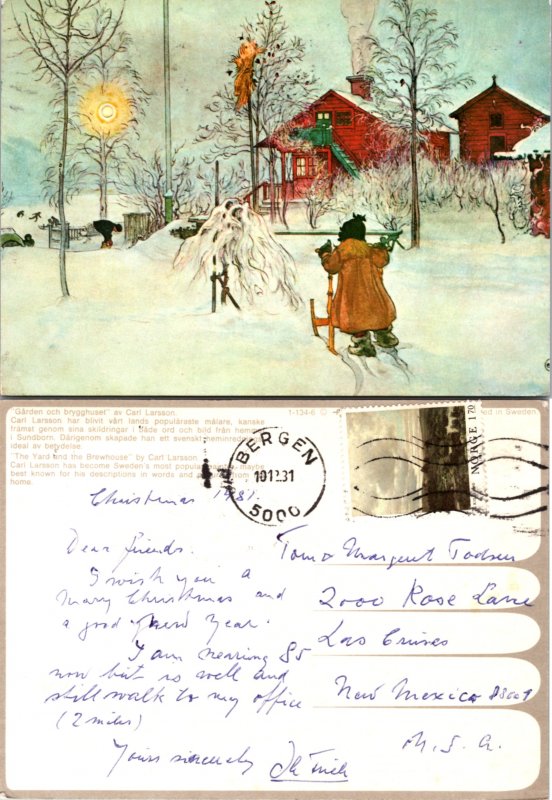 "Gården och brygghuset" av Carl Larsson.
Carl Larsson har blivit vårt lands populäraste målare, kanske
främst genom sina skildringar i både ord och bild från hemmet
i Sundborn. Därigenom skapade han ett svenskt heminredning
ideal av betydelse.
"The Yard and the Brewhouse" by Carl Larsson
Carl Larsson has become Sweden's most popular maybe
best known for his descriptions in words and from
home.
1-134-6 ©
ed in Sweden.
BERGEN
1012.81
5000
NORGE 170
Christmas 1981.
Dear friends.
I wish you a
Mary Christmas and
a good new Year.
I am nearing 85
now but so well and
still walk to my office
(2 miles)
Yours sincerely
Tom & Margaret Todsen
2000 Rose Lane
Las Cruses
New Mexico 88001
U.S.A.